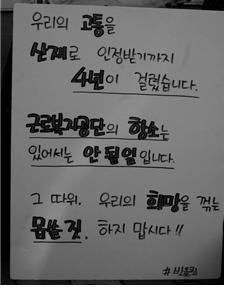 우리의 고통을
산재로 인정받기까지
4년이 걸렸습니다.
근로복지공단의 항소는
있어서는 안 될 일 입니다.
그 따위. 우리의 희망을 꺾는
몹쓸 짓. 하지 맙시다!!